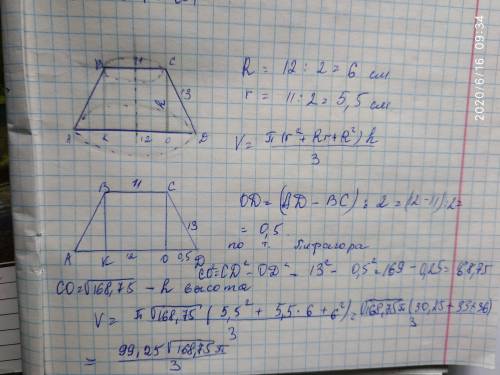 2020/6/16 09:34
11
B C
h 13
A K 12 O D
R = 12 : 2 = 6 см
r = 11 : 2 = 5,5 см
V = π(r² + Rr + R²) h
3
11
B C
13
A K 12 O 0,5 D
OD = (AD − BC) : 2 = (12 − 11) : 2 =
= 0,5.
по т. Пифагора
CO² = CD² − OD² = 13² − 0,5² = 169 − 0,25 = 168,75
CO = √168,75 − h высота
V = π √168,75 (5,5² + 5,5 · 6 + 6²) = √168,75 π (30,25 + 33 + 36)
3 3
= 99,25 √168,75 π
3